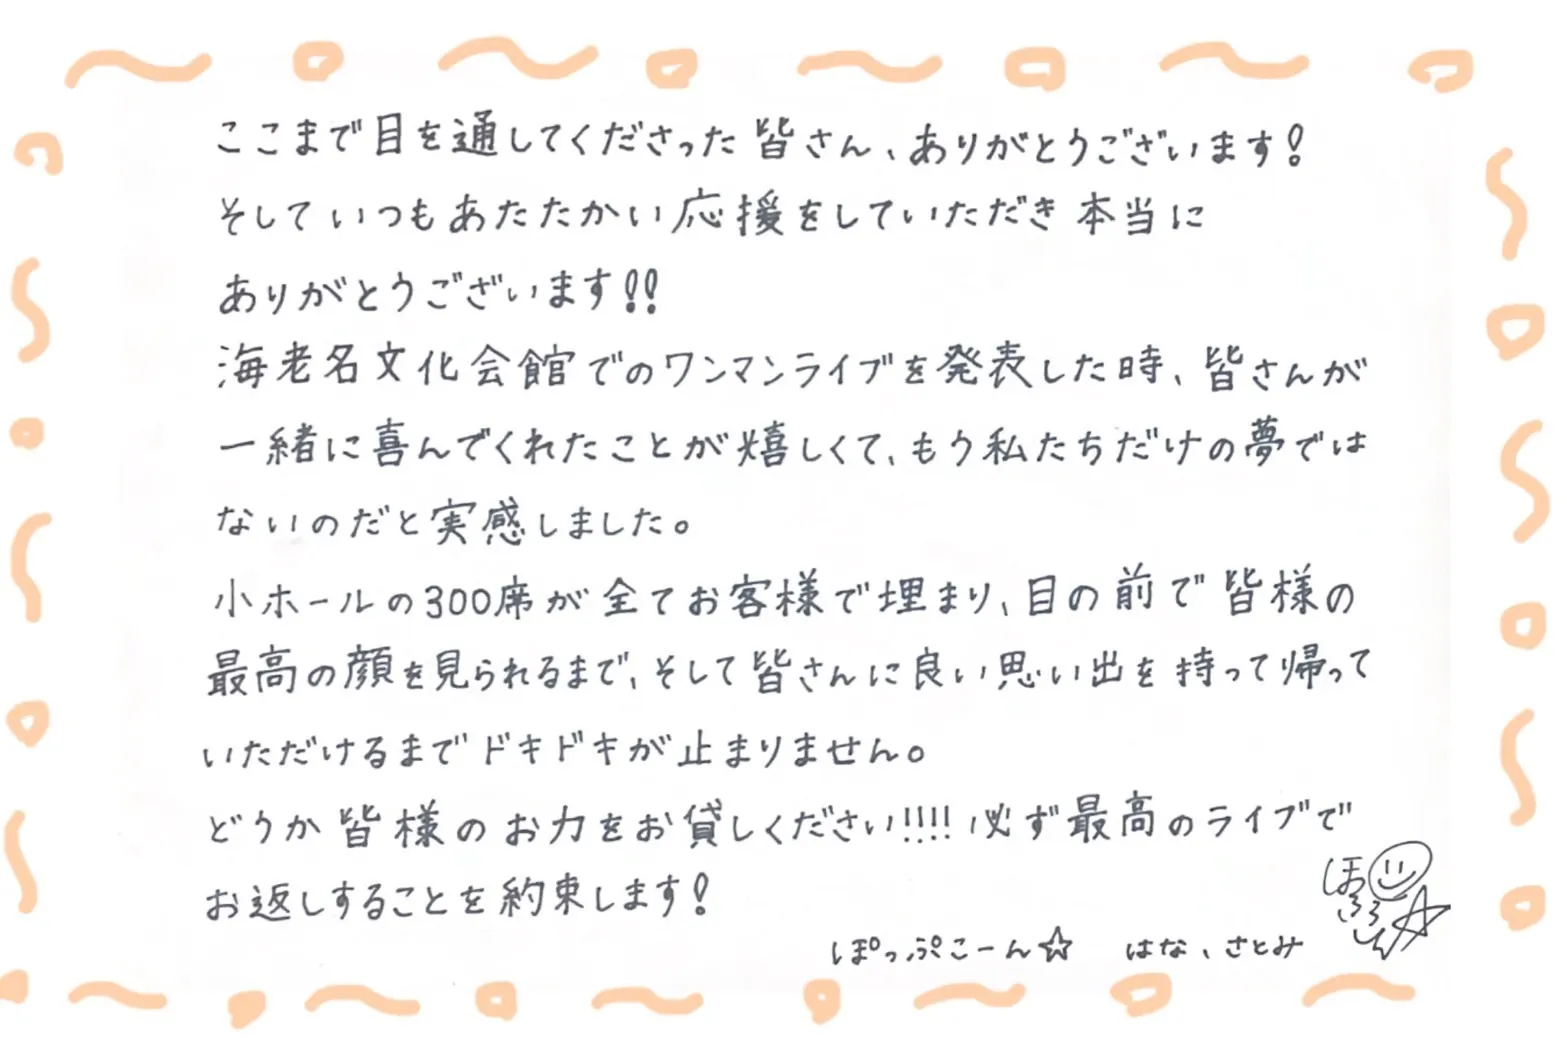 ここまで目を通してくださった皆さん、ありがとうございます!
そしていつもあたたかい応援をしていただき本当に
ありがとうございます!!
海老名文化会館でのワンマンライブを発表した時、皆さんが
一緒に喜んでくれたことが嬉しくて、もう私たちだけの夢では
ないのだと実感しました。
小ホールの300席が全てお客様で埋まり、目の前で皆様の
最高の顔を見られるまで、そして皆さんに良い思い出を持って帰って
いただけるまでドキドキが止まりません。
どうか皆様のお力をお貸しください!!!!必ず最高のライブで
お返しすることを約束します!
ぽっぷこーん☆ はな、さとみ